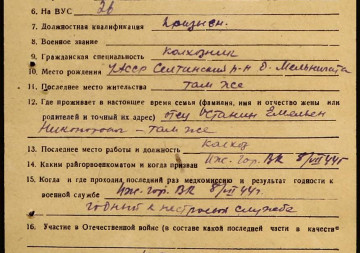 6. На ВУС 26
7. Должностная квалификация
8. Военное звание
9. Гражданская специальность колхозник
10. Место рождения УАССР Селтинский р-н д.
11. Последнее место жительства там же
12. Где проживает в настоящее время семья (фамилия, имя и отчество жены или
родителей и точный их адрес) отец Останин Емельян
там же
13. Последнее место работы и должность колхоз
14. Каким райгорвоенкоматом и когда призван Иж. гор. ВК 8/VIII 44г
15. Когда и где проходил последний раз медкомиссию и результат годности к
военной службе Иж. гор. ВК 8/VIII 44г.
годный к нестроевой службе
16. Участие в Отечественной войне (в составе какой последней части и в качестве